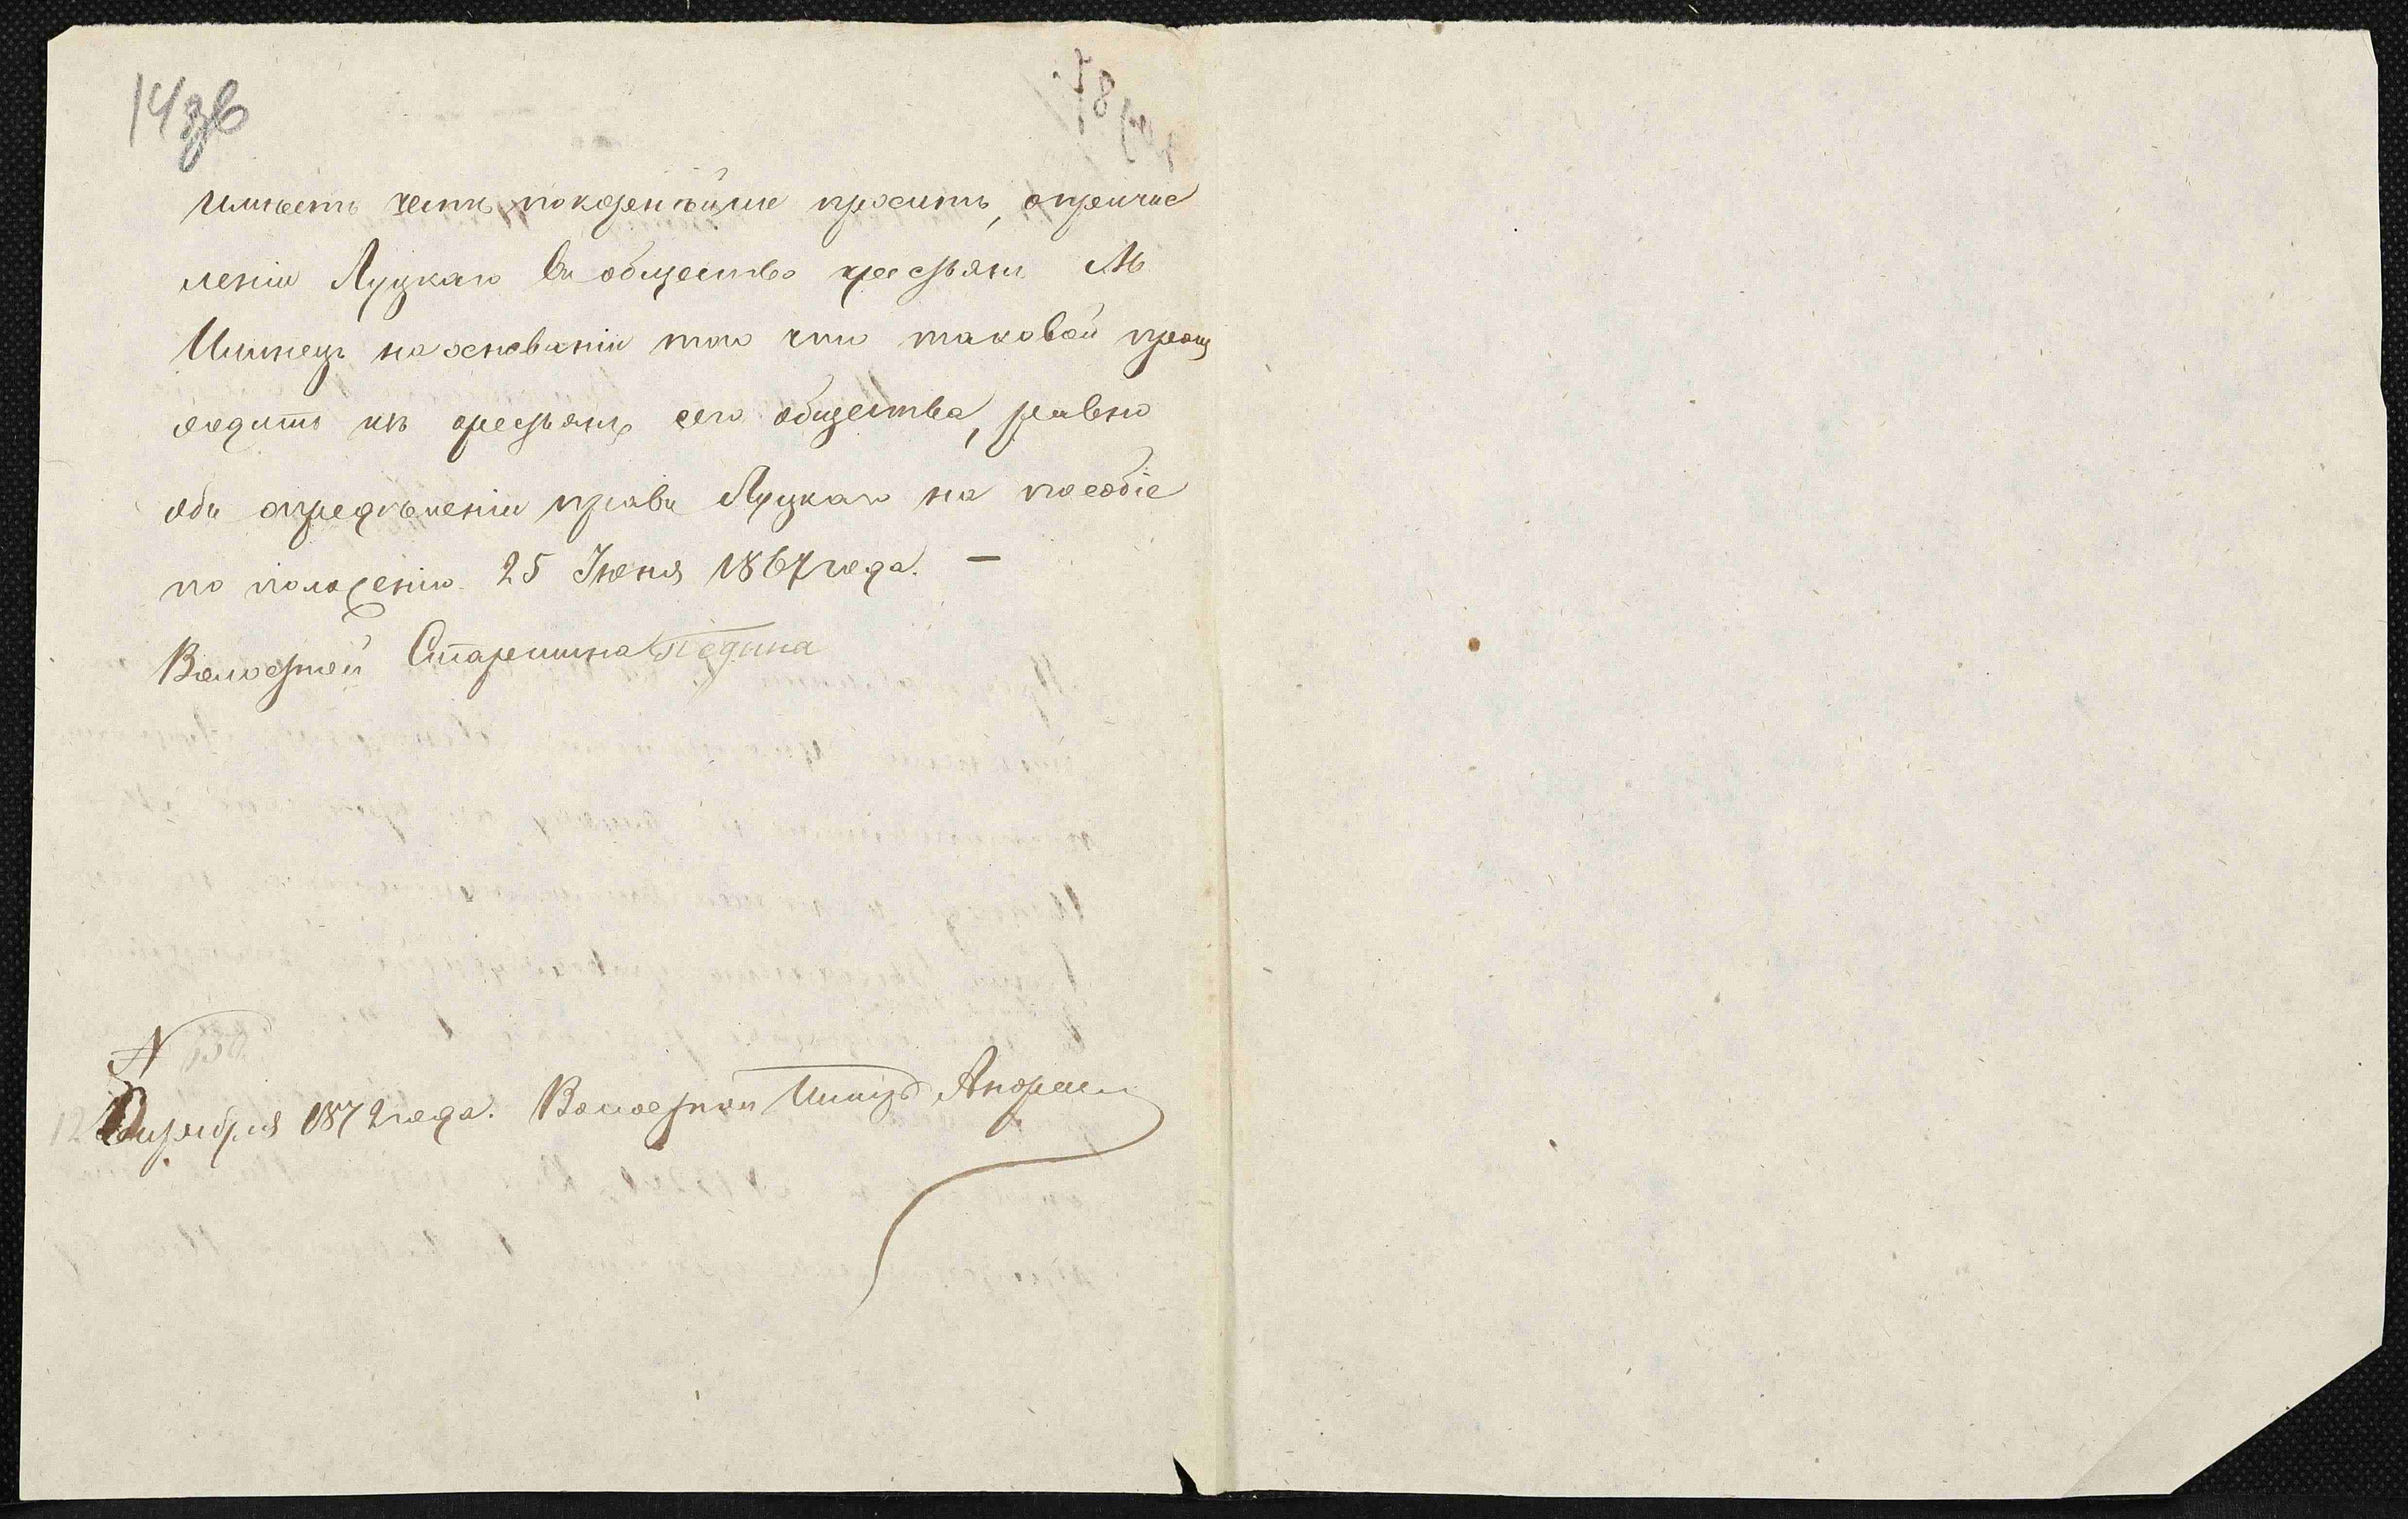 14 зв
имѣетъ честь покорнѣйше просить, опричис
леніи Луцкаго въ общество крестьянъ М.
на основаніи того что таковой происх
ходитъ изъ крестьянъ сего общества, равно
объ опредѣленіи права Луцкаго на пособіе
по положенію 25 Іюня 1867 года. —
Волостной Старшина
N
12 Октября 1872 года. Волостной Писарь Андреев